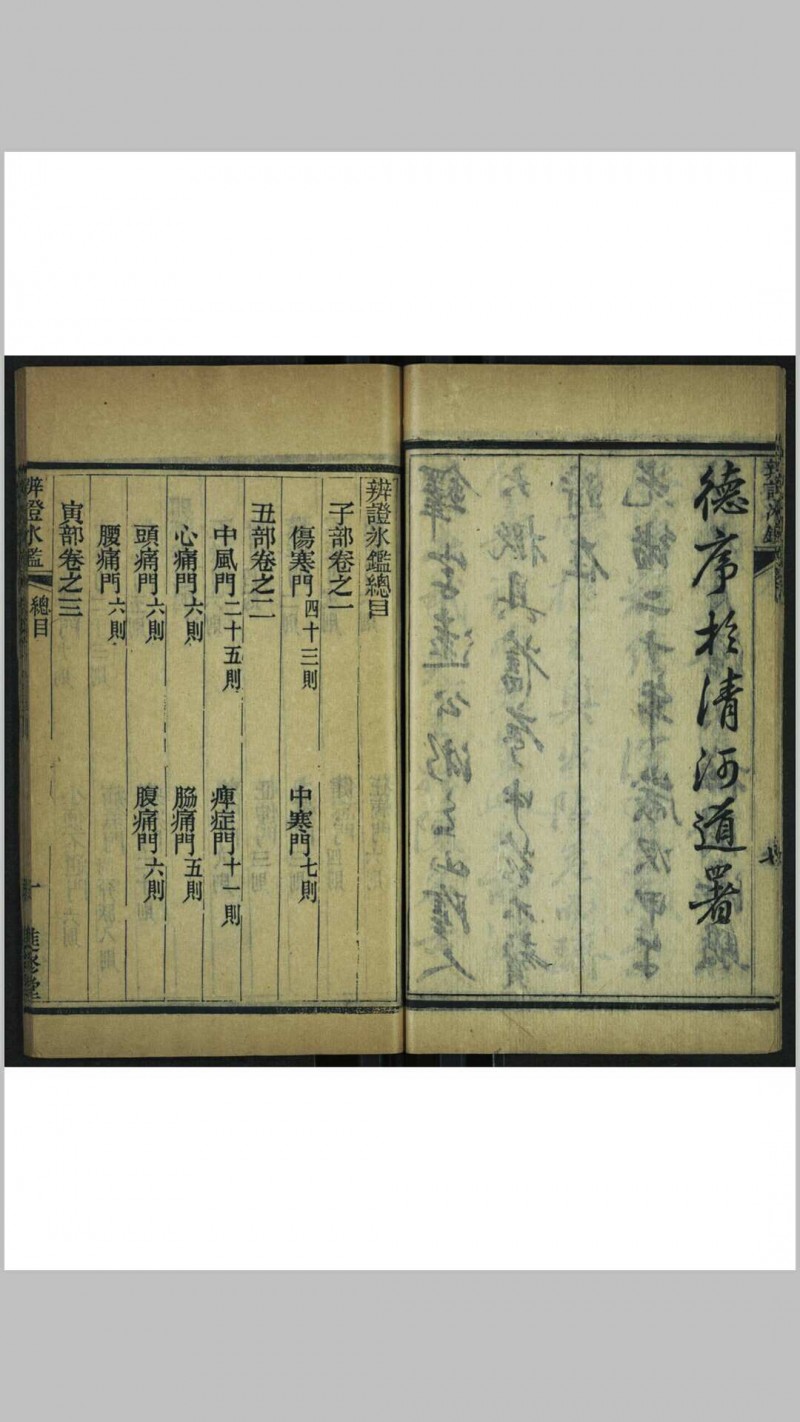 德序於清河道署
辨證冰鑑總目
子部卷之一
傷寒門四十三則 中寒門七則
丑部卷之二
中風門二十五則 痺症門十一則
心痛門六則 脇痛門五則
頭痛門六則 腹痛門六則
腰痛門六則
寅部卷之三
辨證冰鑑 總目 一